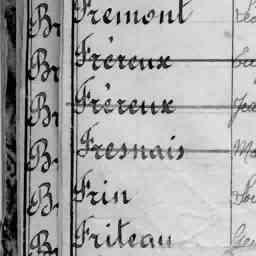 Br Fremont
Br Fréreux
Br Fréreux
Br Fresnais
Br Frin
Br Friteau